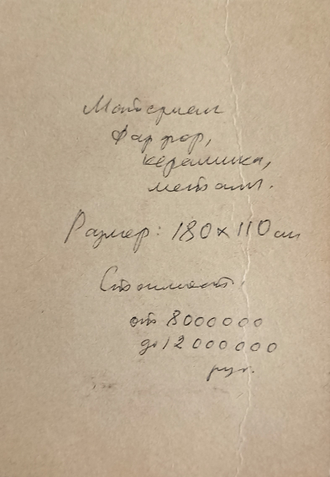 Материал
фарфор,
керамика,
металл.
Размер: 180х110см
Стоимость:
от 8000000
до 12000000
руб.